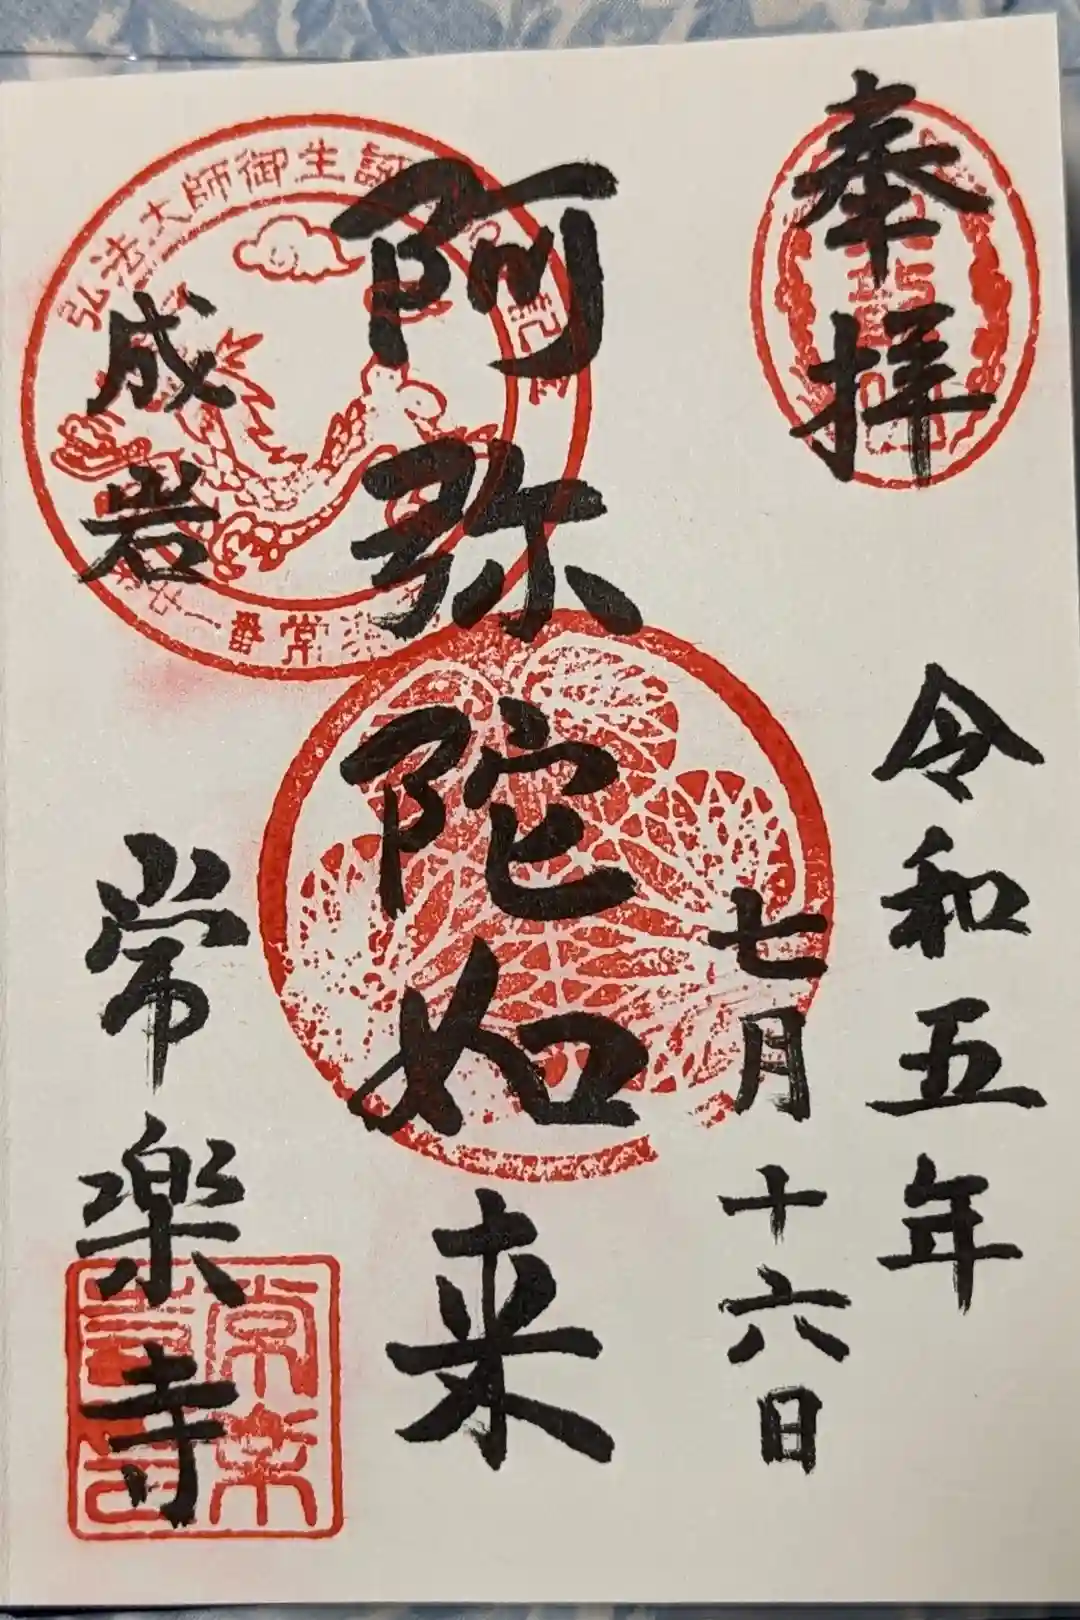 奉拝
令和五年
七月十六日
阿弥陀如来
成岩
常楽寺
弘法大師御生誕
記念
廿一番常楽
常楽